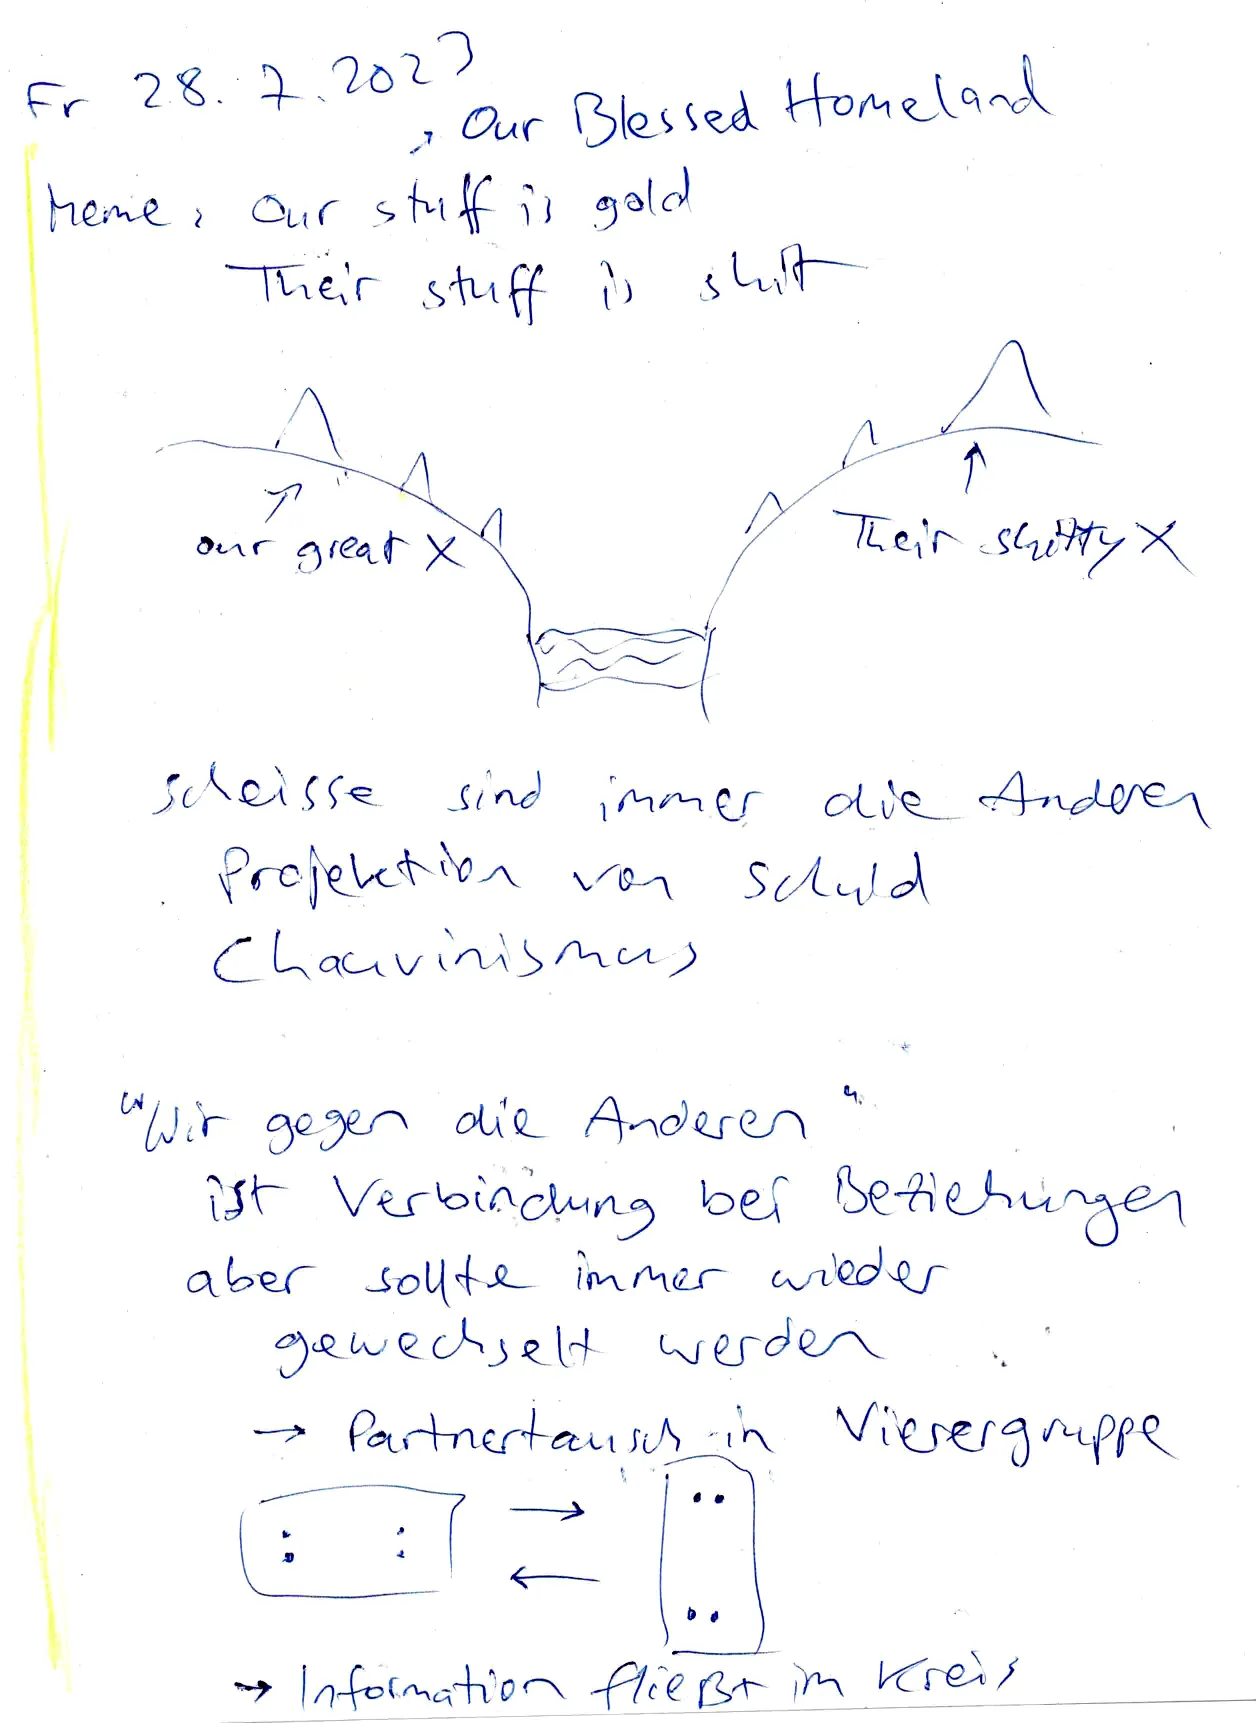 Fr 28.7.2023
, Our Blessed Homeland
Meme: Our stuff is gold
Their stuff is shit
our great X
Their shitty X
scheisse sind immer die Anderen
Projektion von Schuld
Chauvinismus
"Wir gegen die Anderen"
ist Verbindung bei Beziehungen
aber sollte immer wieder
gewechselt werden
→ Partnertausch in Vierergruppe
→ Information fließt im Kreis